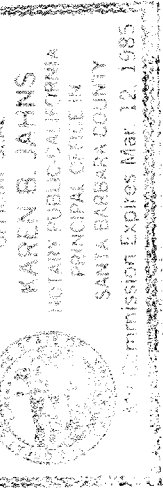 KAREN B. JAHNS
NOTARY PUBLIC-CALIFORNIA
PRINCIPAL OFFICE IN
SANTA BARBARA COUNTY
My Commission Expires Mar. 12, 1985